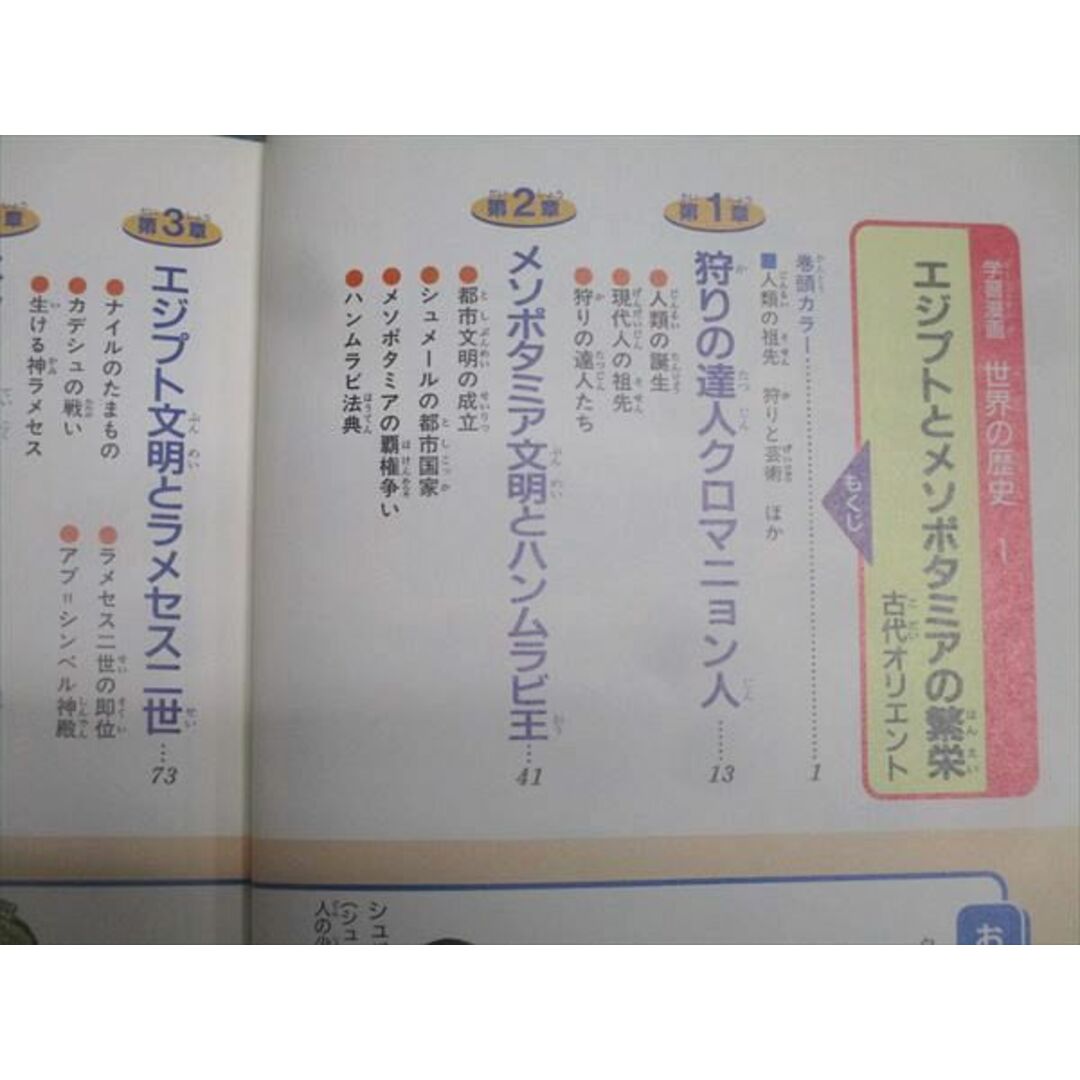 学習漫画 世界の歴史 1
エジプトとメソポタミアの繁栄
古代オリエント
もくじ
巻頭カラー……1
■人類の祖先 狩りと芸術 ほか
第1章
狩りの達人クロマニョン人……13
●人類の誕生
●現代人の祖先
●狩りの達人たち
第2章
メソポタミア文明とハンムラビ王…41
●都市文明の成立
●シュメールの都市国家
●メソポタミアの覇権争い
●ハンムラビ法典
第3章
エジプト文明とラメセス二世…73
●ナイルのたまもの
●カデシュの戦い
●生ける神ラメセス
●ラメセス二世の即位
●アブ=シンベル神殿
章
お
シュ
(シュ
人の